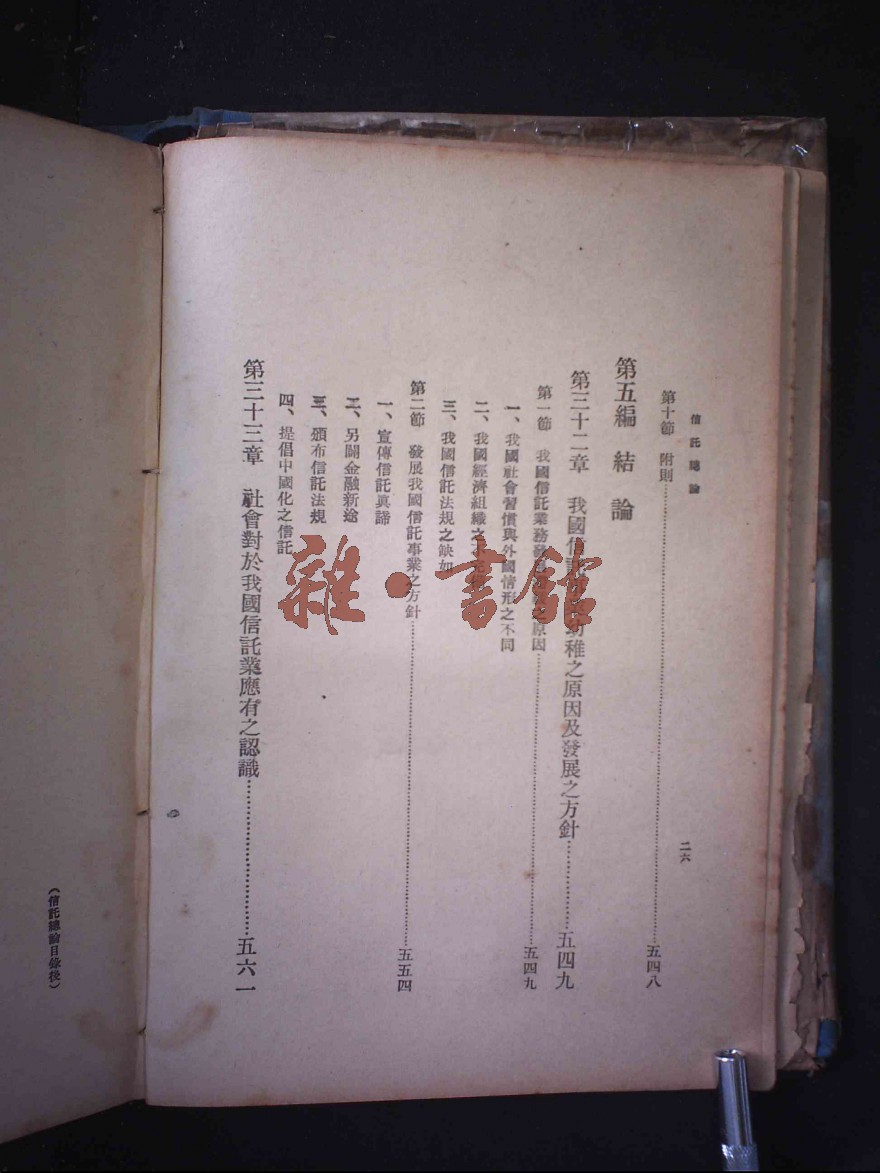 信託總論
二六
第十節 附則……五四八
第五編 結論
第三十二章 我國信託 幼稚之原因及發展之方針……五四九
第一節 我國信託業務 原因……五四九
一、我國社會習慣與外國情形之不同
二、我國經濟組織之
三、我國信託法規之缺如
第二節 發展我國信託事業之方針……五五四
一、宣傳信託真諦
二、另闢金融新途
三、頒布信託法規
四、提倡中國化之信託
第三十三章 社會對於我國信託業應有之認識……五六一
(信託總論目錄後)
雜·書館